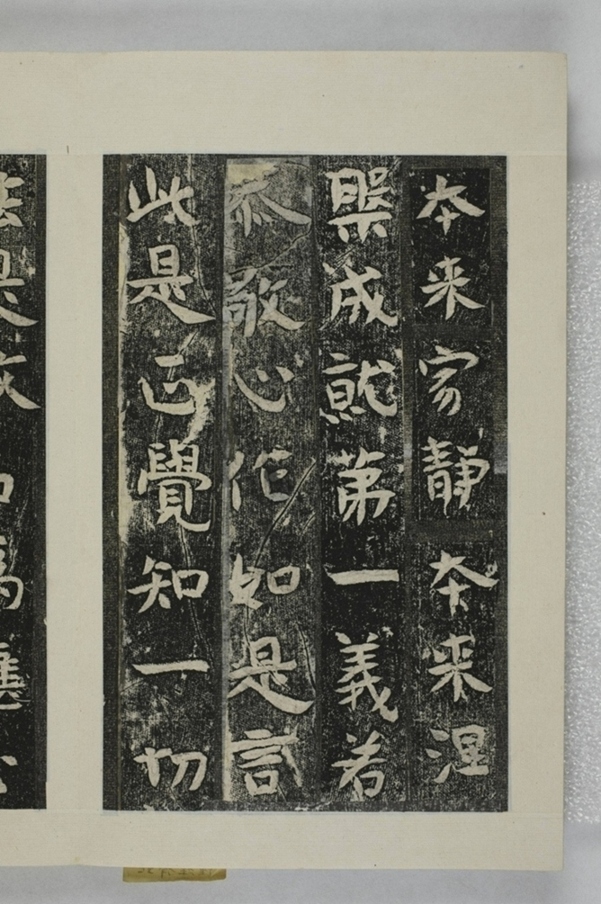 本来寂静本来涅
槃成就第一義若
敬心作如是計
此是正覺知一切
法是故